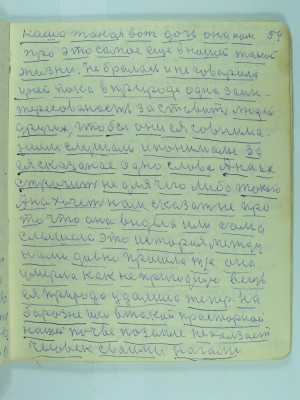 наша такая вот дочь она нам 57
про это самое еще в нашей такой
жизни. Не бралась и не говорила
у ней была в природе одна заин-
тересованость заставить людей
других, чтобы они ея со внима-
нием слушали и понимали за
ея сказаное одно слово. Она их
строчит не для чего либо такого
Она хочет нам сказать не про
то что она видела или сама
слышала это история, между
нами давно прошла т/е она
умерла как не пригодную вещь
ея природа удалила теперь. На
борозне шел в такой просторной
нашей почве по земле не ползает
человек своими ногами